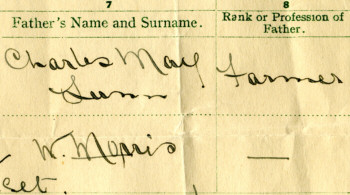 7
8
Father's Name and Surname.
Rank or Profession of
Father.
Charles May
Farmer
Lunn
W. Morris
—